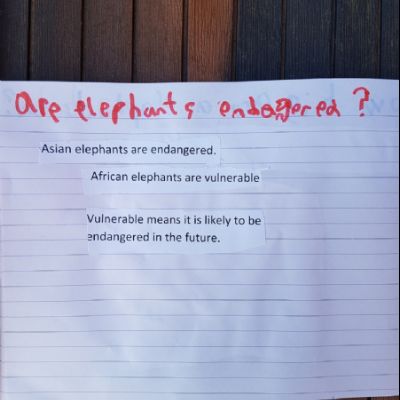 are elephants endangered?
Asian elephants are endangered.
African elephants are vulnerable
Vulnerable means it is likely to be
endangered in the future.